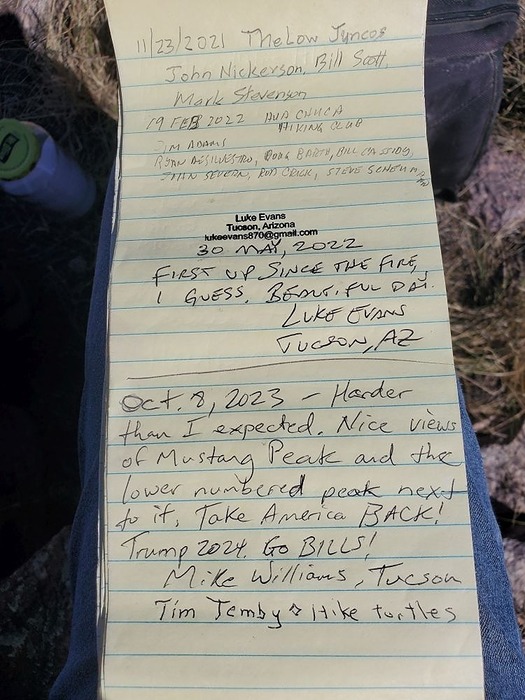 11/23/2021 The Low Juncos
John Nickerson, Bill Scott,
Mark Stevenson
19 FEB 2022 HUACHUCA
HIKING CLUB
JIM ADAMS
RYAN DESILVESTRO, DOUG BARTH, BILL CASSIDY,
SEVERN, ROD CRICK, STEVE
Luke Evans
Tucson, Arizona
lukeevans870@gmail.com
30 MAY, 2022
FIRST UP SINCE THE FIRE,
I GUESS. BEAUTIFUL DAY.
LUKE EVANS
TUCSON, AZ
Oct. 8, 2023 - Harder
than I expected. Nice views
of Mustang Peak and the
lower numbered peak next
to it. Take America BACK!
Trump 2024. Go BILLS!
Mike Williams, Tucson
Tim Temby Hike turtles